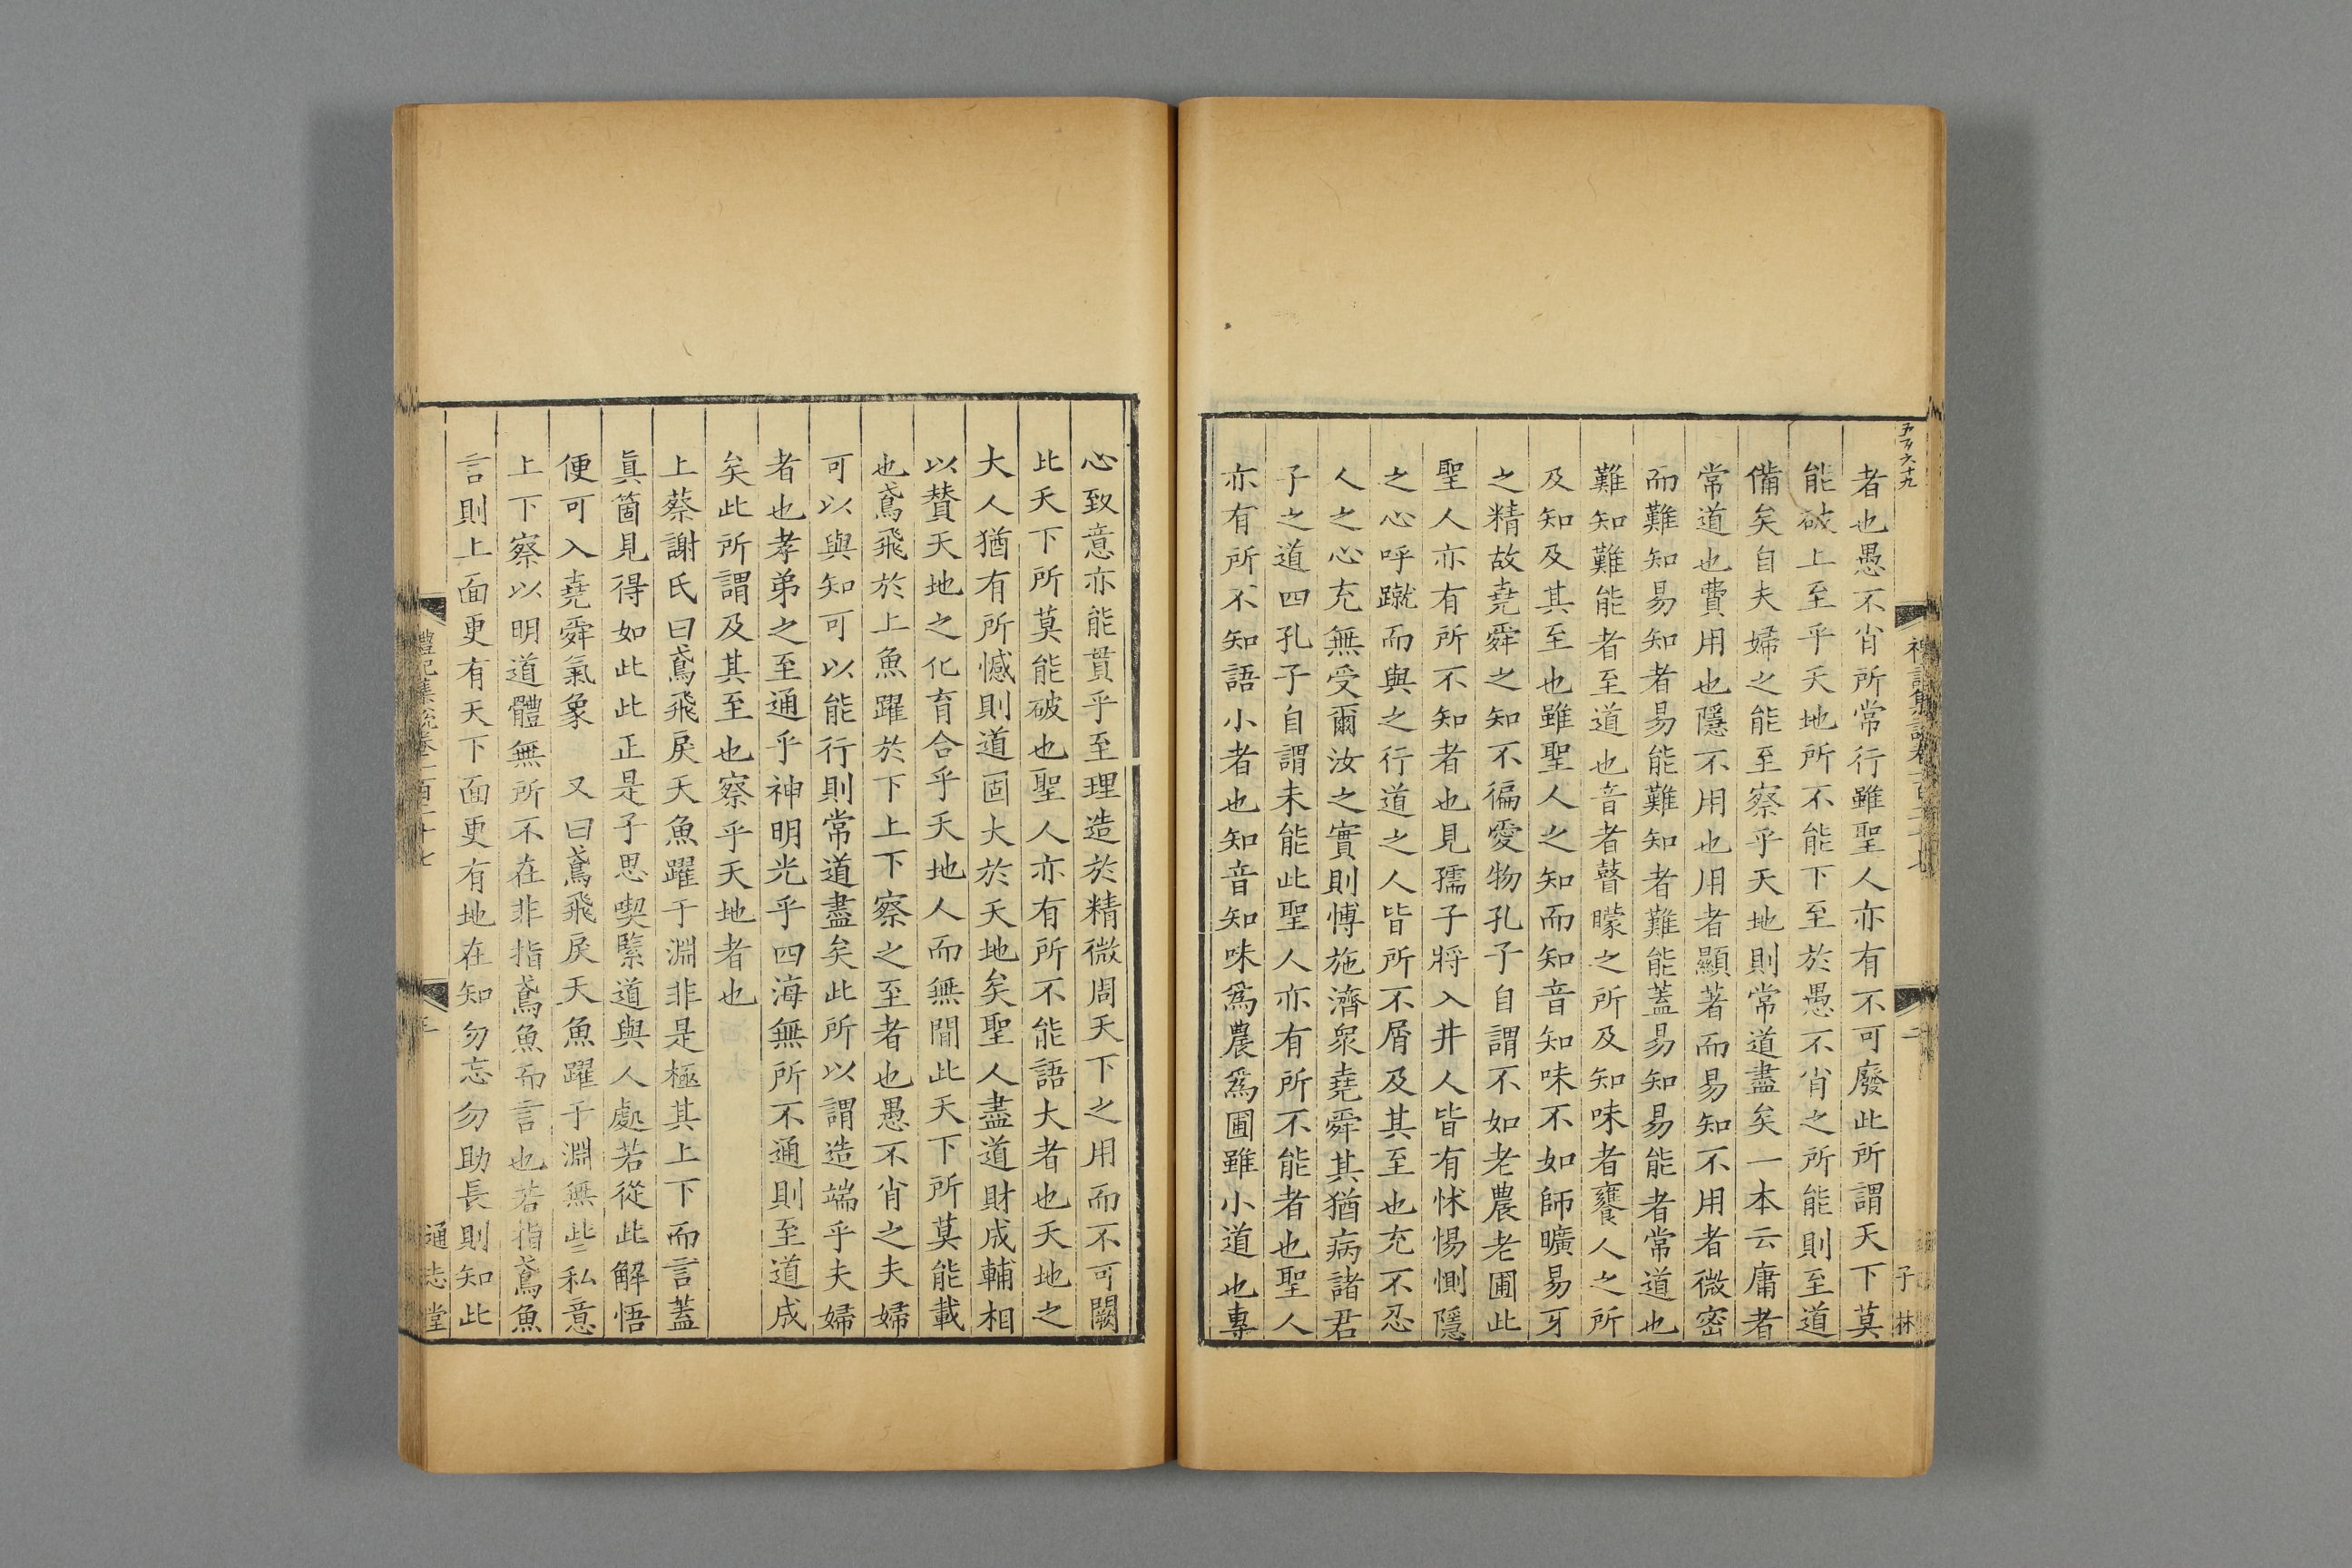 五百六十九
子林
者也愚不肖所常行雖聖人亦有不可廢此所謂天下莫
能破上至乎天地所不能下至於愚不肖之所能則至道
備矣自夫婦之能至察乎天地則常道盡矣一本云庸者
常道也費用也隱不用也用者顯著而易知不用者微密
而難知易知者易能難知者難能蓋易知易能者常道也
難知難能者至道也音者瞽矇之所及知味者饔人之所
及知及其至也雖聖人之知而知音知味不如師曠易牙
之精故堯舜之知不徧愛物孔子自謂不如老農老圃此
聖人亦有所不知者也見孺子將入井人皆有怵惕惻隱
之心呼蹴而與之行道之人皆所不屑及其至也充不忍
人之心充無受爾汝之實則博施濟眾堯舜其猶病諸君
子之道四孔子自謂未能此聖人亦有所不能者也聖人
亦有所不知語小者也知音知味爲農爲圃雖小道也專
心致意亦能貫乎至理造於精微周天下之用而不可闕
此天下所莫能破也聖人亦有所不能語大者也天地之
大人猶有所憾則道固大於天地矣聖人盡道財成輔相
以贊天地之化育合乎天地人而無間此天下所莫能載
也鳶飛於上魚躍於下上下察之至者也愚不肖之夫婦
可以與知可以能行則常道盡矣此所以謂造端乎夫婦
者也孝弟之至通乎神明光乎四海無所不通則至道成
矣此所謂及其至也察乎天地者也
上蔡謝氏曰鳶飛戾天魚躍于淵非是極其上下而言蓋
眞箇見得如此此正是子思喫緊道與人處若從此解悟
便可入堯舜氣象　又曰鳶飛戾天魚躍于淵無些私意
上下察以明道體無所不在非指鳶魚而言也若指鳶魚
言則上面更有天下面更有地在知勿忘勿助長則知此
禮記集說卷一百二十七
通志堂